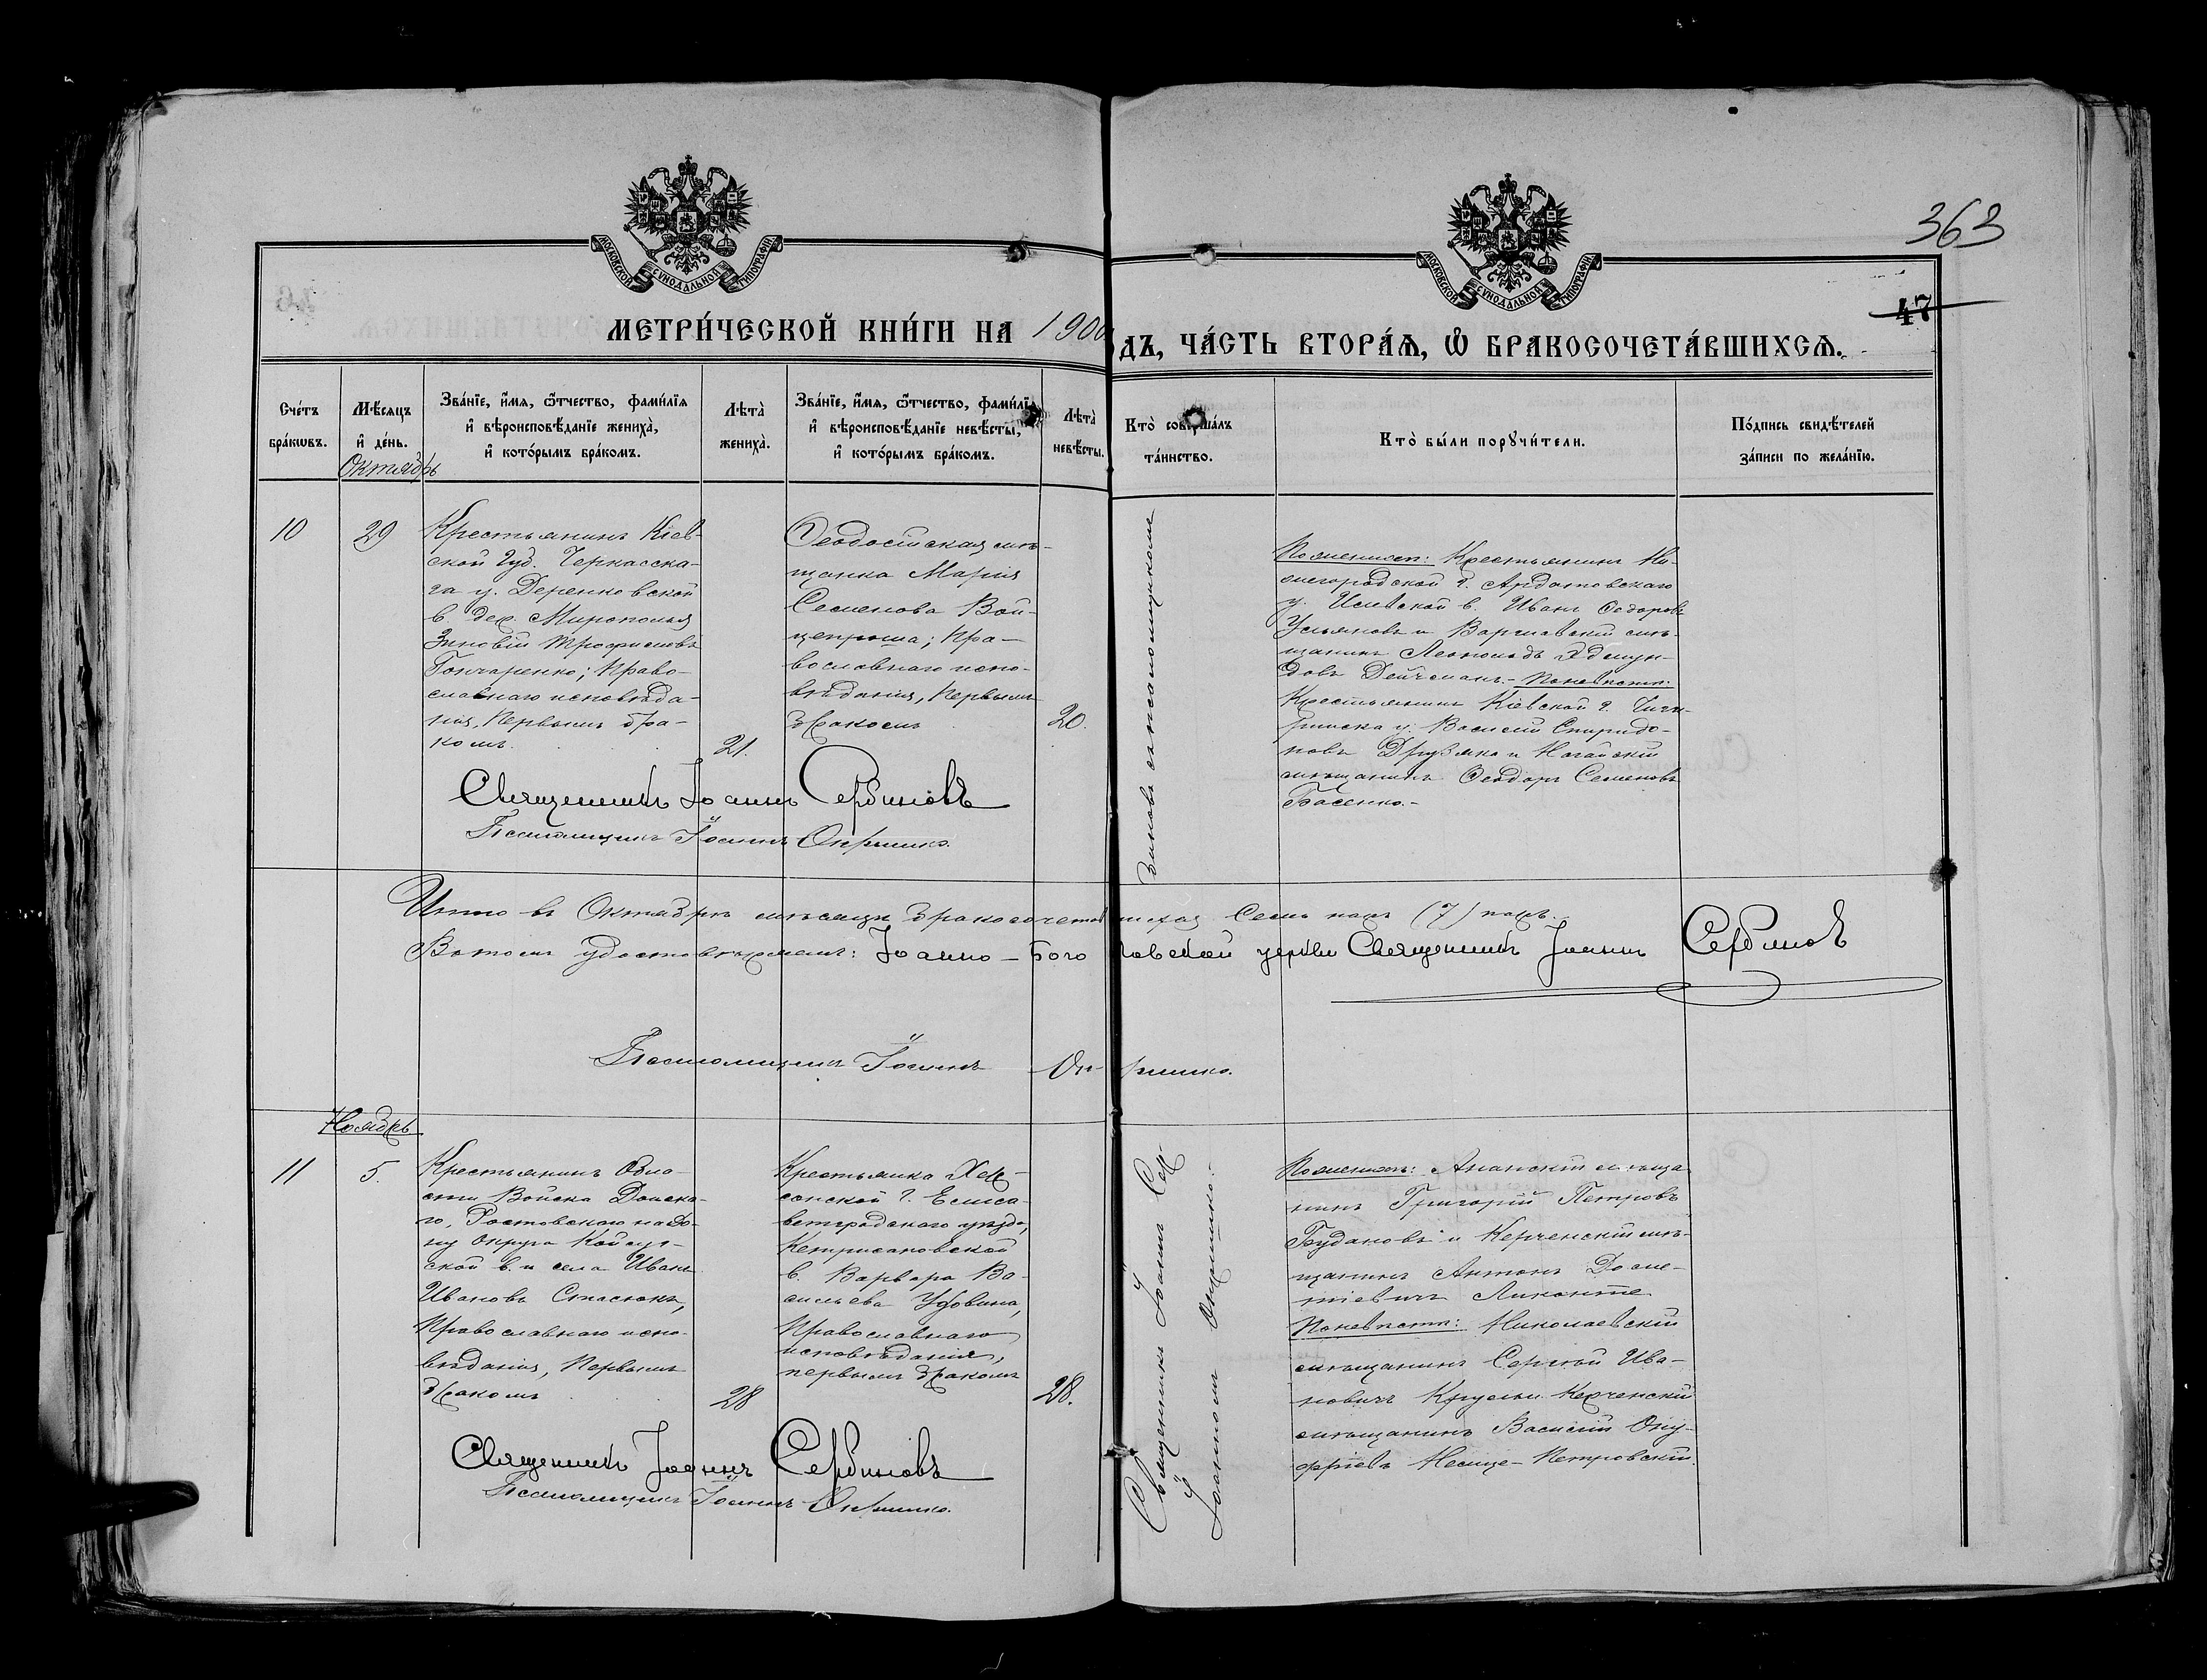 363
МОСКОВСКОЙ СУНОДАЛЬНОЙ ТИПОГРАФІИ
МОСКОВСКОЙ СУНОДАЛЬНОЙ ТИПОГРАФІИ
47
МЕТРИ́ЧЕСКОЙ КНИ́ГИ НА 1900
ДЪ, ЧА́СТЬ ВТОРА́Ѧ, Ѽ БРАКОСОЧЕТА́ВШИХСѦ.
Сче́тъ
бра́кωвъ.
Мѣ́сяцъ
и҆ де́нь.
Октябрь
Зва́нїе, и҆́мя, ѻ҆́тчество, фами́лїя
и҆ вѣроисповѣ́данїе жениха̀,
и҆ кото́рымъ бра́комъ.
Лѣта̀
жениха̀.
Зва́нїе, и҆́мя, ѻ҆́тчество, фами́лїя
и҆ вѣроисповѣ́данїе невѣ́сты,
и҆ кото́рымъ бра́комъ.
Лѣта̀
невѣ́сты.
Кто̀ соверша́лъ
та́инство.
Кто̀ бы́ли порꙋчи́тели.
По́дпись свидѣ́телей
за́писи по жела́нїю.
10
29
Крестьянинъ Кіев-
ской губ. Черкасска-
га у. Деренковской
в. дер. Мирополья
Зиновій Трофимовъ
Гончаренко; Право-
славнаго исповѣда-
нія, Первымъ бра-
комъ.
21.
Ѳеодосійская мѣ-
щанка Марія
Семенова Вой-
; Пра-
вославнаго испо-
вѣданія, Первымъ
Бракомъ
20.
биновъ съ псаломщикомъ
По женихѣ: Крестьянинъ Ни-
жегородской г. Ардатовскаго
у. в. Иванъ Ѳедоровъ
Ульяновъ и Варшавскій мѣ-
щанинъ Леопольдъ Эдмун-
довъ Дейчманъ.- По невѣстѣ:
Крестьянинъ Кіевской г. Чиги-
ринска у. Василій Спиридо-
новъ и Ногайскій
мѣщанинъ Ѳеодоръ Семеновъ
Басенко.-
Священникъ Іоаннъ Сербиновъ
Псаломщикъ Іоаннъ Окрышко.
Итого въ Октябрѣ мѣсяцѣ бракосочетавшихся Семь паръ (7) паръ.
Въ томъ удостовѣряемъ: Іоанно-Богословской церкви Священникъ Іоаннъ Сербиновъ
Псаломщикъ Іоаннъ Окрышко.
Ноябрь
11
5.
Крестьянинъ Обла-
сти Войска Донска-
го, Ростовскаго на До-
ну округа Койсуг-
ской в. и села Иванъ
Ивановъ Стасюкъ,
Православнаго испо-
вѣданія, Первымъ
Бракомъ
28
Крестьянка Хер-
сонской г. Елиса-
ветградскаго уѣзда,
Кетрисановской
в. Варвара Ва-
сильева Удовина,
Православнаго
исповѣданія,
первымъ бракомъ
28.
Священникъ Іоаннъ Сер-
Іоанномъ Окрышко.
По женихѣ: Ананскій мѣща
нинъ Григорій Петровъ
Будановъ и Керченскій мѣ-
щанинъ Антонъ Доме-
нтіевичъ
По невѣстѣ: Николаевскій
мѣщанинъ Сергѣй Ива-
новичъ Керченскій
мѣщанинъ Василій Ону-
фріевъ Петровскій.
Священникъ Іоаннъ Сербиновъ
Псаломщикъ Іоаннъ Окрышко.